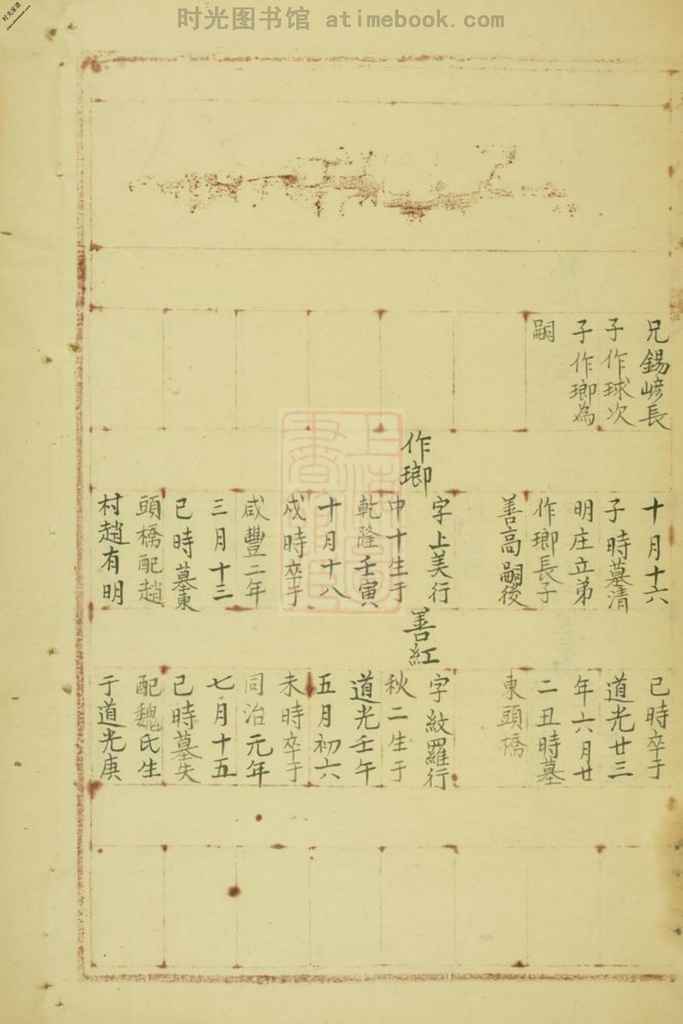 时光图书馆 atimebook.com
兄錫嵃長
子作球次
子作瑯為
嗣
十月十六
子時墓清
明庄立弟
作瑯長子
善高嗣後
作瑯
字上美行
中十生于
乾隆壬寅
十月十八
戌時卒于
咸豐二年
三月十三
巳時墓東
頭橋配趙
村趙有明
巳時卒于
道光廿三
年六月廿
二丑時墓
東頭橋
善紅
字紋羅行
秋二生于
道光壬午
五月初六
未時卒于
同治元年
七月十五
巳時墓失
配魏氏生
于道光庚